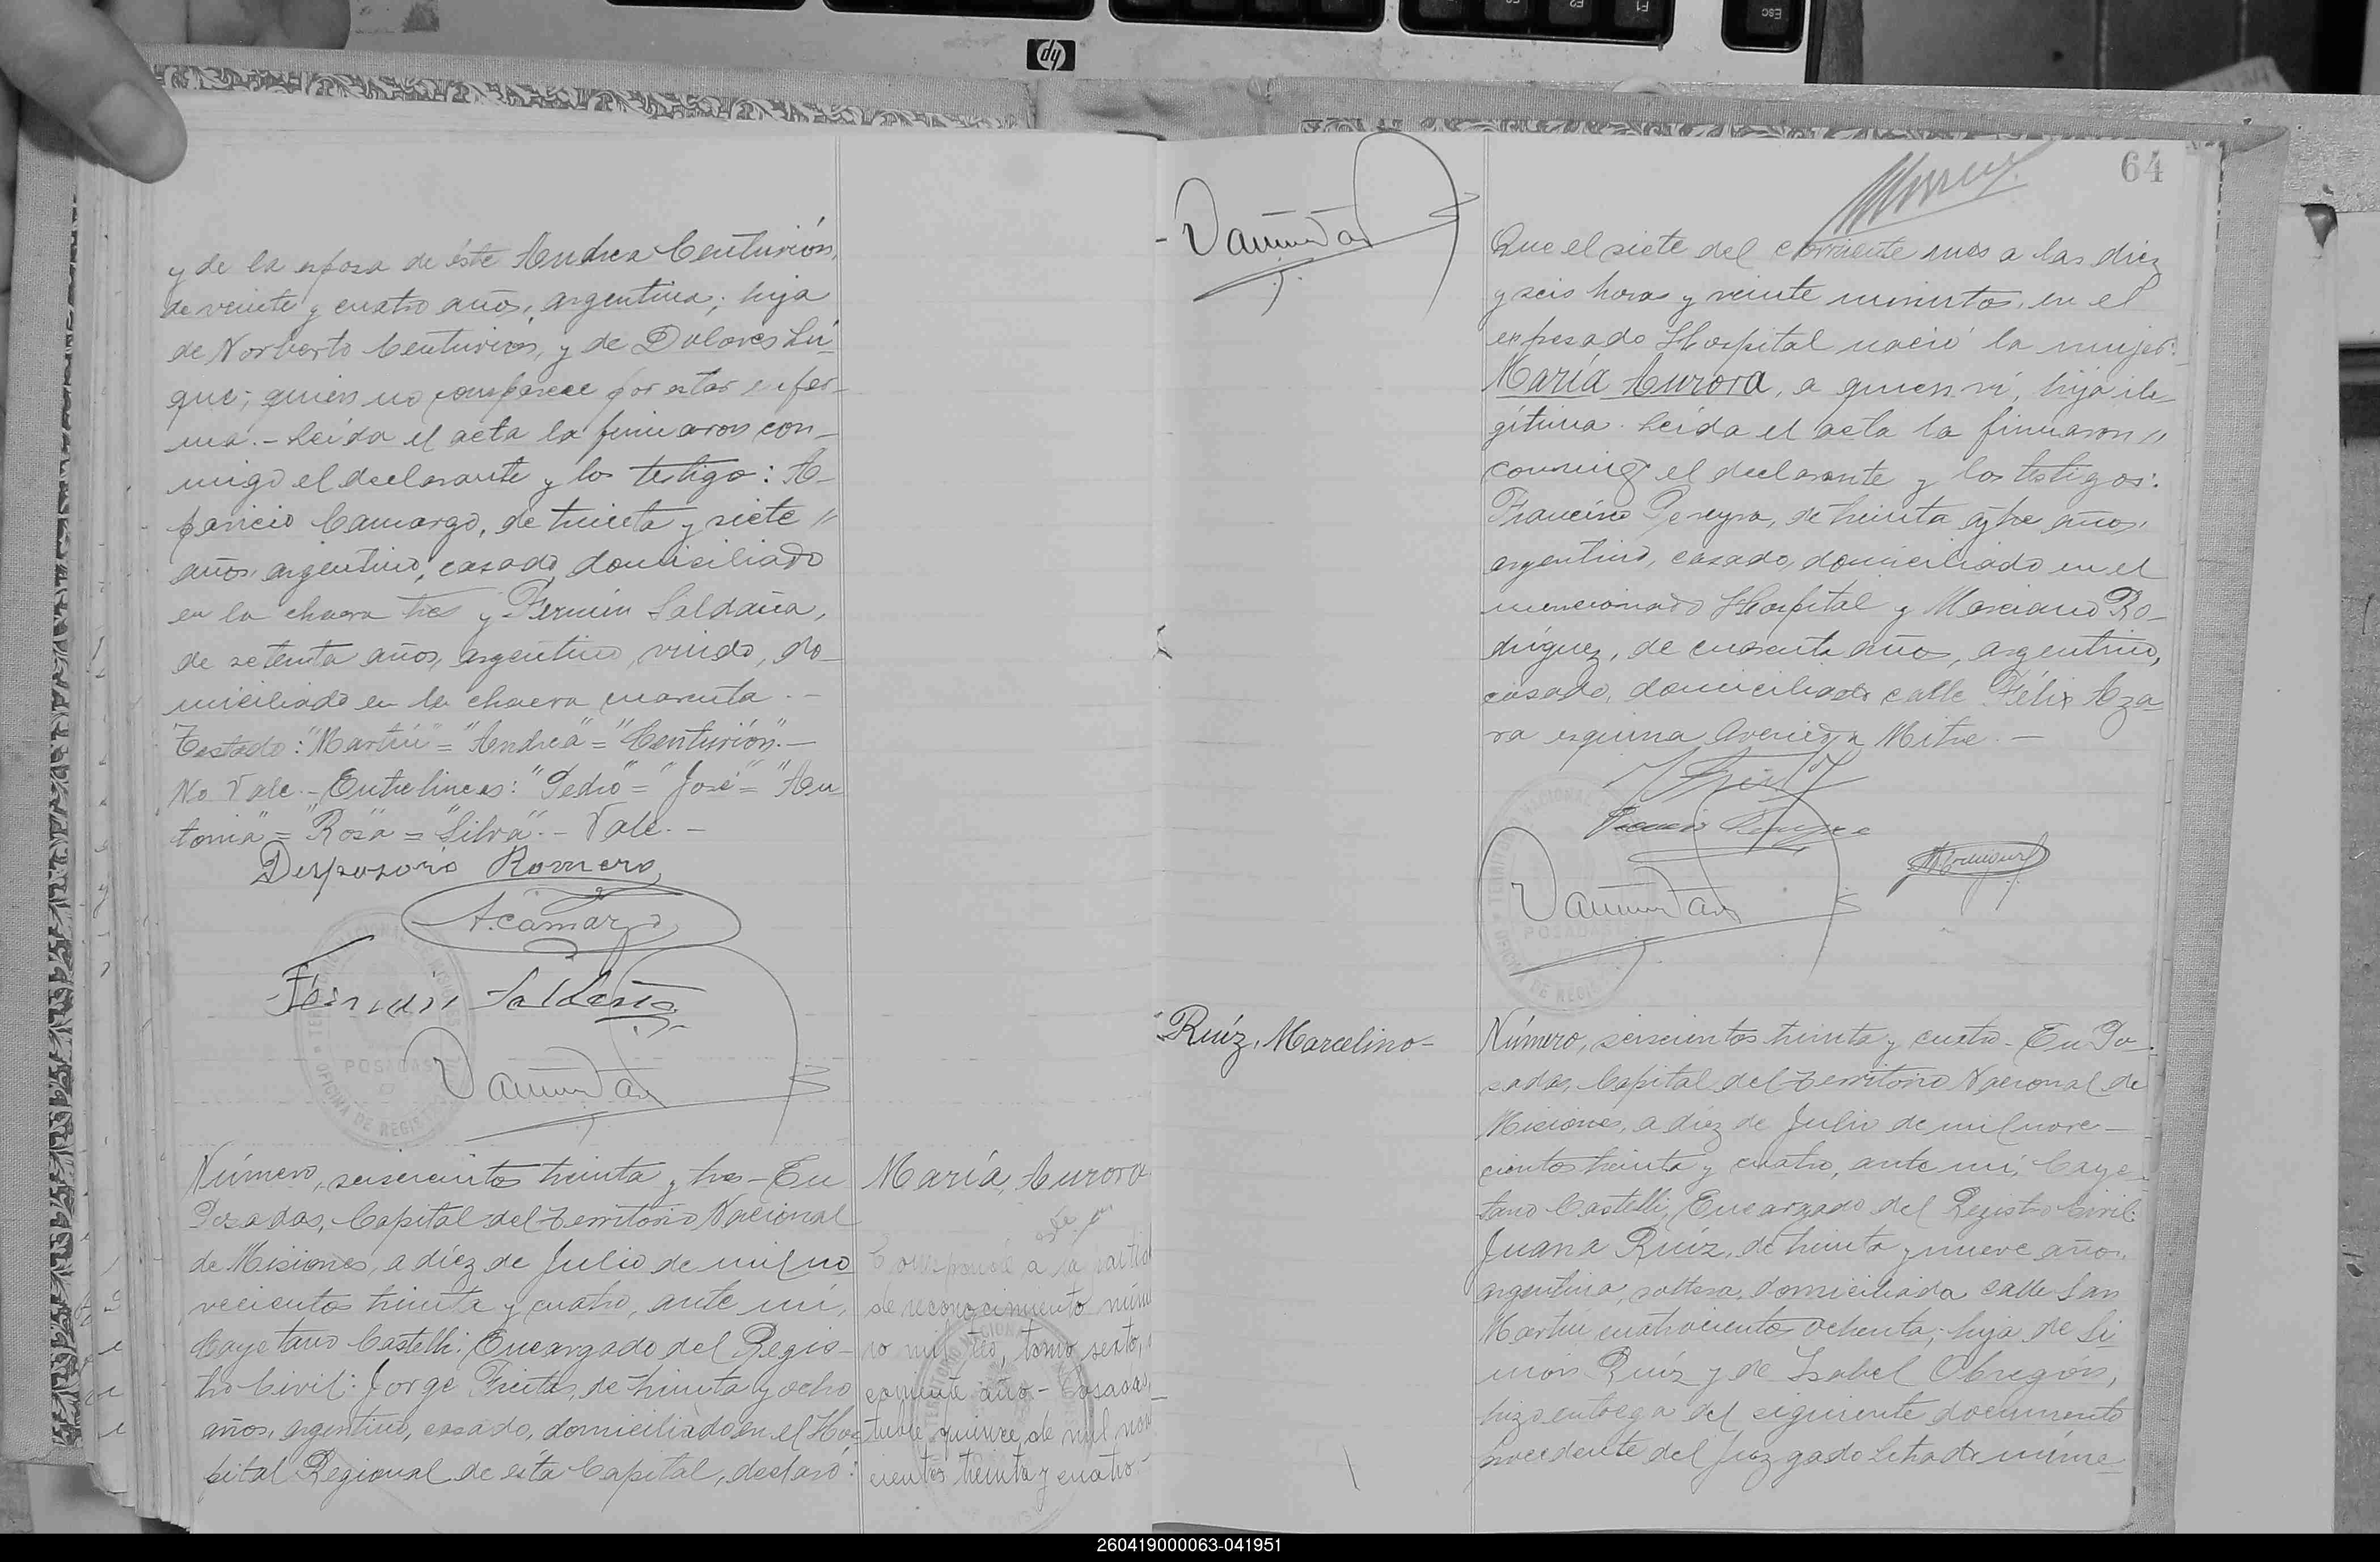 y de la esposa de éste Andrea Centurión,
de veinte y cuatro años, argentina; hija
de Norberto Centurión, y de Dolores Lu-
que; quien no comparece por estar enfer-
ma.- Leída el acta la firmaron con-
migo el declarante y los testigo: A-
paricio Camargo, de treinta y siete "
años, argentino, casado, domisiliado
en la chacra tres y Fermín Saldaña,
de setenta años, argentino, viudo, do-
miciliado en la chacra cuarenta.-
Testado: "Martín" = "Andrea" = "Centurión".-
No Vale.- Entrelineas: "Pedro" = "José" = "An-
tonia" = "Rosa" = "Silva".- Vale.-
Desposorio Romero
A. Camargo
Fermin Saldaña
POSADAS
Número, seiscientos treinta y tres- En
Posadas, Capital del Territorio Nacional
de Misiones, a diez de Julio de mil no
vecientos treinta y cuatro, ante mí,
Cayetano Castelli: Encargado del Regis-
tro Civil: Jorge Freites, de treinta y ocho
años, argentino, casado, domiciliado en el Hos
pital Regional de ésta Capital, declaró:
María, Aurora
Corresponde a la partid
de reconocimiento núm
ro mil tomo sexto,
corriente año.- Posadas,
quince de mil nov
cientos treinta y cuatro.-
64
Que el siete del corriente mes a las diez
y seis horas y veinte minutos, en el
expresado Hospital nació la mujer:
María Aurora, a quien ví, hija ile
gítima. Leída el acta la firmaron "
conmigo el declarante y los testigos:
Francisco Pereyra, de treinta años,
argentino, casado, domiciliado en el
mencionado Hospital y Marciano Ro-
dríguez, de cuarenta años, argentino,
casado, domiciliado calle Félix Aza-
ra esquina Avenida Mitre.-
POSADAS
Ruíz, Marcelino-
Número, seiscientos treinta y cuatro- En Po-
sadas, Capital del Territorio Nacional de
Misiones, a diez de Julio de mil nove-
cientos treinta y cuatro, ante mí, Caye-
tano Castelli, Encargado del Registro Civil:
Juana Ruíz, de treinta y nueve años,
argentina, soltera, domiciliada calle San
Martín cuatrocientos ochenta; hija de Si
món Ruíz y de Isabel Obregón,
hizo entrega del siguiente documento
procedente del Juzgado Letrado núme
260419000063-041951